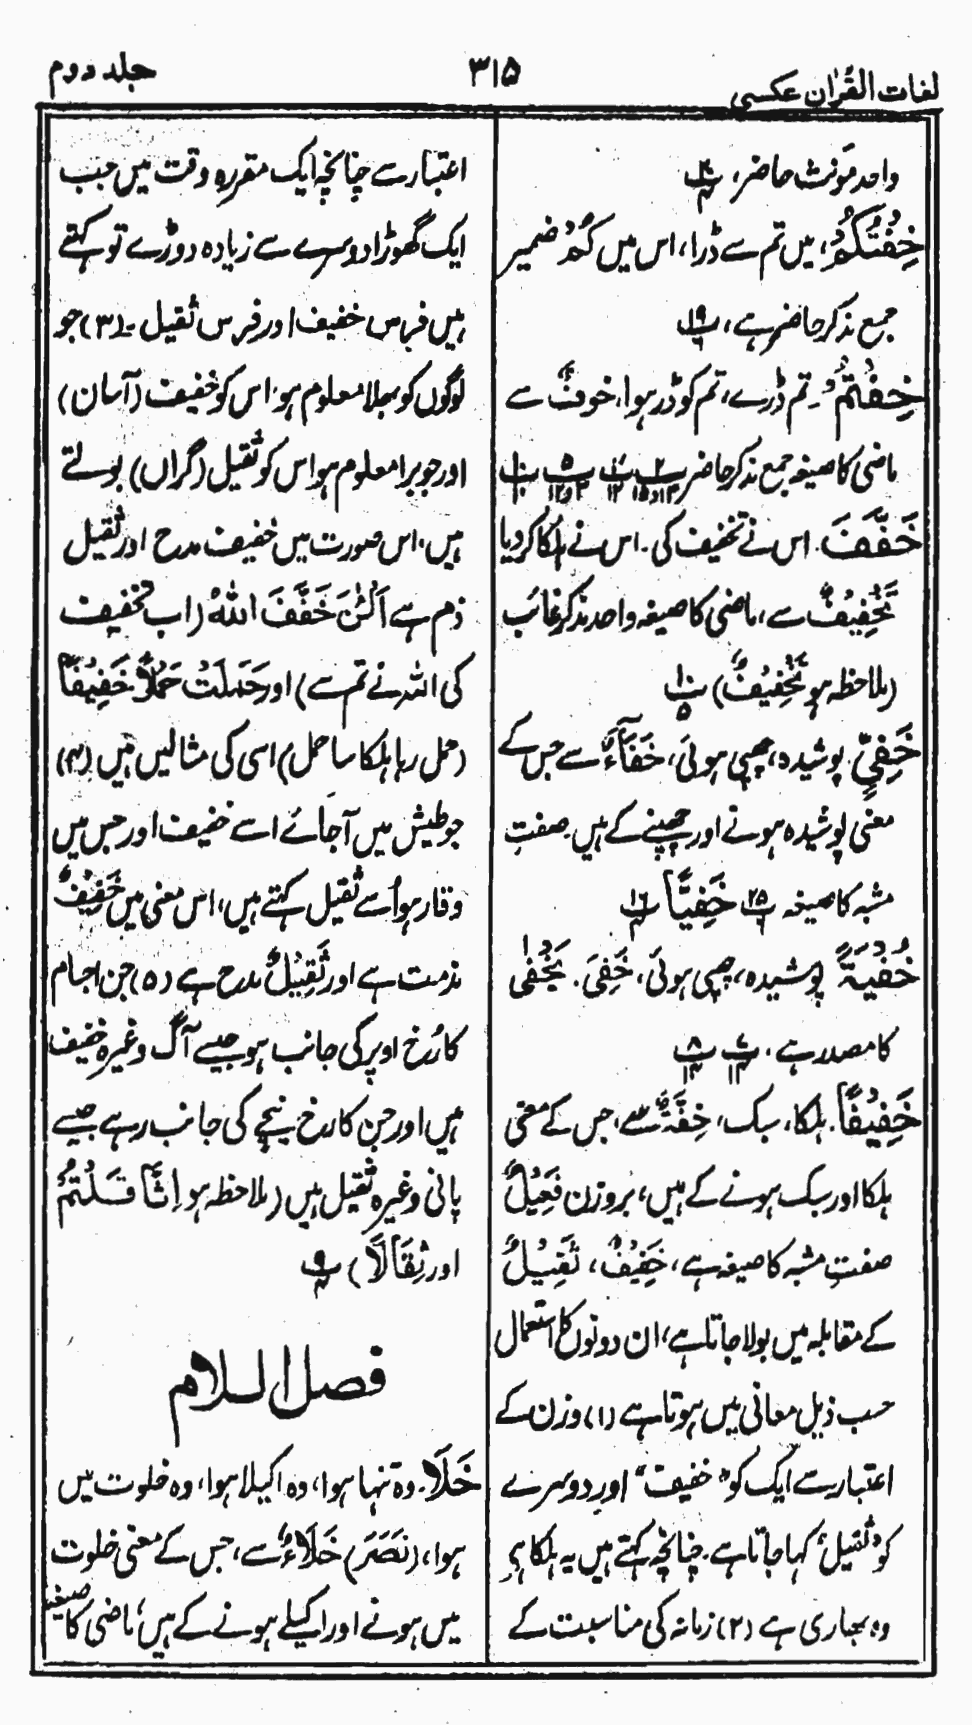 لغات القرآن عکسی
۳۱۵
جلد دوم
واحد مؤنث حاضر، پ۲۰
خِفْتُكُمْ، میں تم سے ڈرا، اس میں كُمْ ضمیر
جمع مذکر حاضر ہے، پ۱۹
خِفْتُمْ۔ تم ڈرے، تم کو ڈر ہوا، خوفٌ سے
ماضی کا صیغہ جمع مذکر حاضر
خَفَّفَ۔ اس نے تخفیف کی۔ اس نے ہلکا کر دیا
تَخْفِيْفٌ سے، ماضی کا صیغہ واحد مذکر غائب
(ملاحظہ ہو تَخْفِيْفٌ) پ۱۰
خَفِيٍّ۔ پوشیدہ، چھپی ہوئی، خَفَاءٌ سے جس کے
معنی پوشیدہ ہونے اور چھپنے کے ہیں۔ صفتِ
مشبہ کا صیغہ پ۲۵ خَفِيًّا پ۱۶
خُفْيَةً پوشیدہ، چھپی ہوئی، خَفِيَ۔ يَخْفٰى
کا مصدر ہے، پ۷ پ۸
خَفِيْفًا۔ ہلکا، سبک، خِفَّةٌ سے، جس کے معنی
ہلکا اور سبک ہونے کے ہیں، بروزن فَعِيْلٌ
صفتِ مشبہ کا صیغہ ہے، خَفِيْفٌ، ثَقِيْلٌ
کے مقابلہ میں بولا جاتا ہے، ان دونوں کا استعمال
حسب ذیل معانی میں ہوتا ہے (۱) وزن کے
اعتبار سے ایک کو "خفیف" اور دوسرے
کو "ثقیل" کہا جاتا ہے۔ چنانچہ کہتے ہیں یہ ہلکا ہے
وہ بھاری ہے (۲) زمانہ کی مناسبت کے
اعتبار سے چنانچہ ایک مقررہ وقت میں جب
ایک گھوڑا دوسرے سے زیادہ دوڑے تو کہتے
ہیں فرس خفیف اور فرس ثقیل۔ (۳) جو
لوگوں کو بھلا معلوم ہو اس کو خفیف (آسان)
اور جو برا معلوم ہو اس کو ثقیل (گراں) بولتے
ہیں، اس صورت میں خفیف مدح اور ثقیل
ذم ہے اَلْئٰنَ خَفَّفَ اللهُ (اب تخفیف
کی اللہ نے تم سے) اور حَمَلَتْ حَمْلًا خَفِيْفًا
(حمل رہا ہلکا سا حمل) اسی کی مثالیں ہیں (۴)
جو طیش میں آجائے اسے خفیف اور جس میں
وقار ہو اُسے ثقیل کہتے ہیں، اس معنی میں خَفِيْفٌ
مذمت ہے اور ثَقِيْلٌ مدح ہے (۵) جن اجسام
کا رُخ اوپر کی جانب ہو جیسے آگ وغیرہ خفیف
ہیں اور جن کا رخ نیچے کی جانب رہے جیسے
پانی وغیرہ ثقیل ہیں (ملاحظہ ہو اِثَّاقَلْتُمْ
اور ثِقَالًا) پ۹
فصل اللام
خَلَا۔ وہ تنہا ہوا، وہ اکیلا ہوا، وہ خلوت میں
ہوا، (نَصَرَ) خَلَاءٌ سے، جس کے معنی خلوت
میں ہونے اور اکیلے ہونے کے ہیں، ماضی کا صیغہ